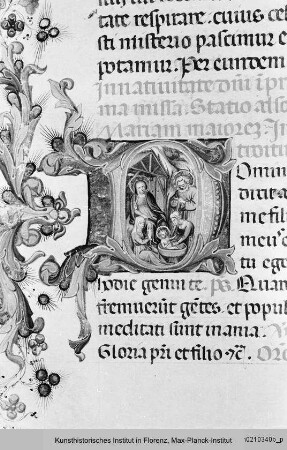 tate respirare. cuius cel
sti misterio pascimur e
potamur. Per eundem
In nativitate dñi ī pri
ma missa. Statio ad sc
Mariam maiorez. In
troitus
Domin
dixit a
me fili
meus e
tu ege
hodie genui te. ps. Quar
fremuerūt gētes. et popul
meditati sunt inania.
Gloria pri et filio ⁊c̄. Orō
Kunsthistorisches Institut in Florenz, Max-Planck-Institut